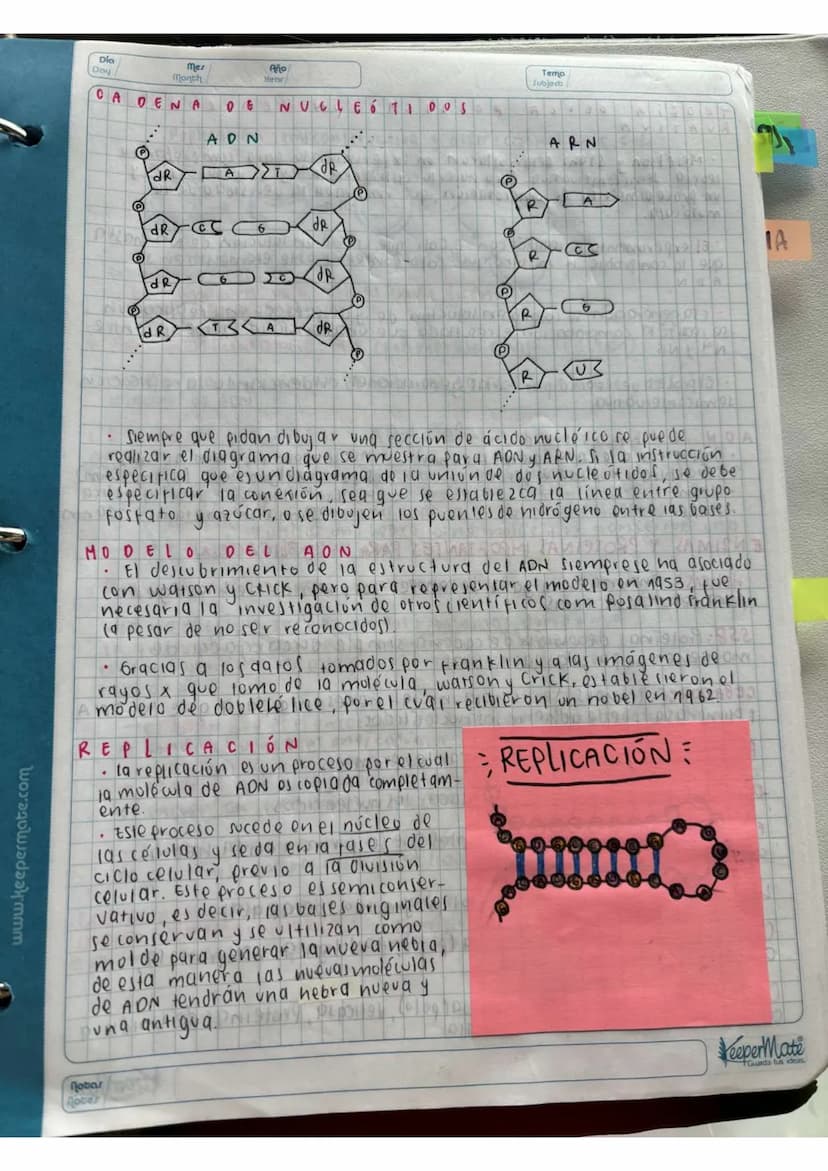 Día
Day
Mes
Month
Año
Year
Tema
Subject
CADENA DE NUCLEÓTIDOS
ADN
ARN
P dR A T dR P
P dR C G dR P
P dR G C dR P
P dR T A dR P
P R A
P R C
P R G
P R U
· Siempre que pidan dibujar una sección de ácido nucléico se puede
realizar el diagrama que se muestra para ADN y ARN. Si la instrucción
especifica que es un diagrama de la unión de dos nucleótidos, se debe
especificar la conexión, sea que se establezca la línea entre grupo
fosfato y azúcar, o se dibujen los puentes de hidrógeno entre las bases.
MODELO DEL ADN
· El descubrimiento de la estructura del ADN siempre se ha asociado
con Watson y Crick, pero para representar el modelo en 1953, fue
necesaria la investigación de otros científicos com Rosalind Franklin
(a pesar de no ser reconocidos).
· Gracias a los datos tomados por Franklin y a las imágenes de
rayos x que tomo de la molécula, Watson y Crick, establesieron el
modelo de doble hélice, por el cual recibieron un nobel en 1962.
REPLICACIÓN
· la replicación es un proceso por el cual
la molécula de ADN es copiada completam-
ente.
· Este proceso sucede en el núcleo de
las células y se da en la fase S del
ciclo celular, previo a la división
celular. Este proceso es semiconser-
vativo, es decir, las bases originales
se conservan y se ultilizan como
molde para generar la nueva hebra,
de esta manera las nuevas moléculas
de ADN tendrán una hebra nueva y
una antigua.
REPLICACIÓN
IA
www.keepermate.com
KeeperMate
Guarda tus ideas.
Notas
Notes